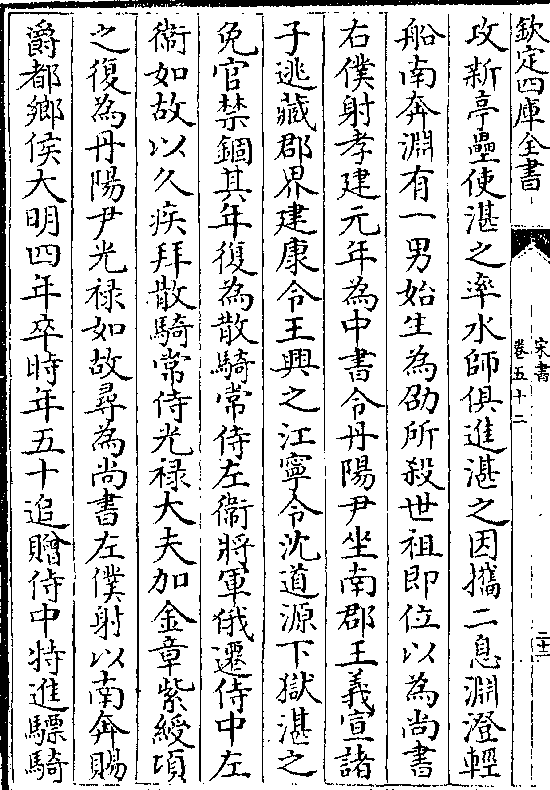 欽定四庫全書
宋書
卷五十二
二十二
攻新亭壘使湛之率水師俱進湛之因攜二息淵澄輕
船南奔淵有一男始生為劭所殺世祖即位以為尚書
右僕射孝建元年為中書令丹陽尹坐南郡王義宣諸
子逃藏郡界建康令王興之江寧令沈道源下獄湛之
免官禁錮其年復為散騎常侍左衞將軍俄遷侍中左
衞如故以久疾拜散騎常侍光禄大夫加金章紫綬頃
之復為丹陽尹光禄如故尋為尚書左僕射以南奔賜
爵都鄉侯大明四年卒時年五十追贈侍中特進驃騎